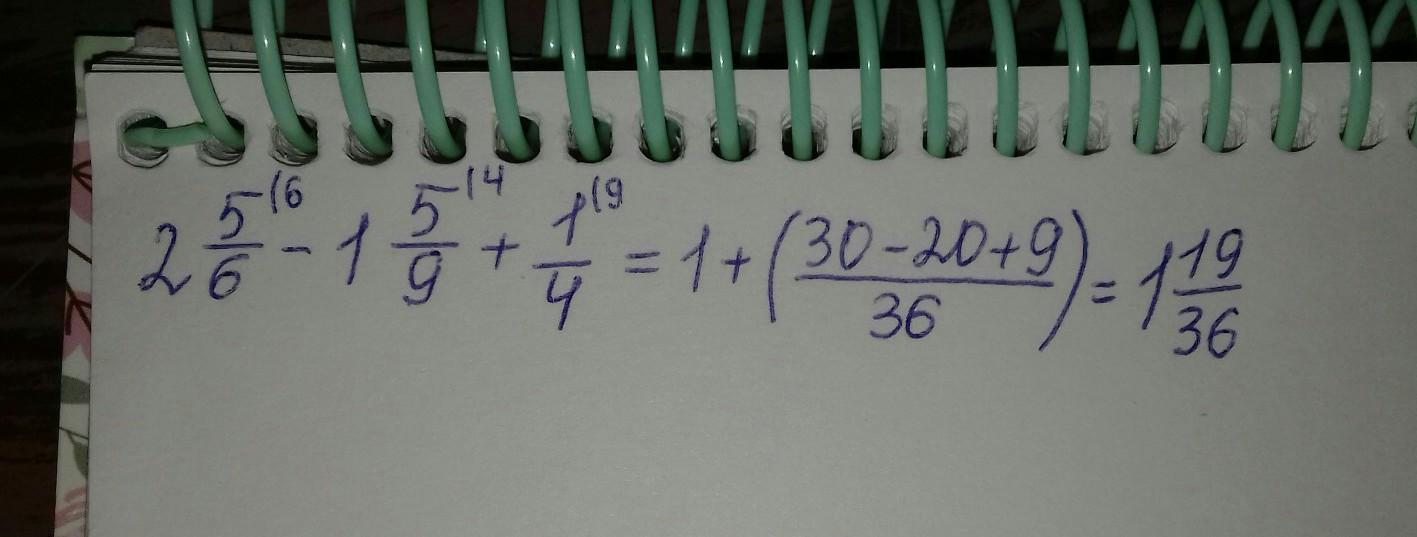 2 5/6 ⁽⁶ - 1 5/9 ⁽⁴ + 1/4 ⁽⁹ = 1 + (30-20+9 / 36) = 1 19/36